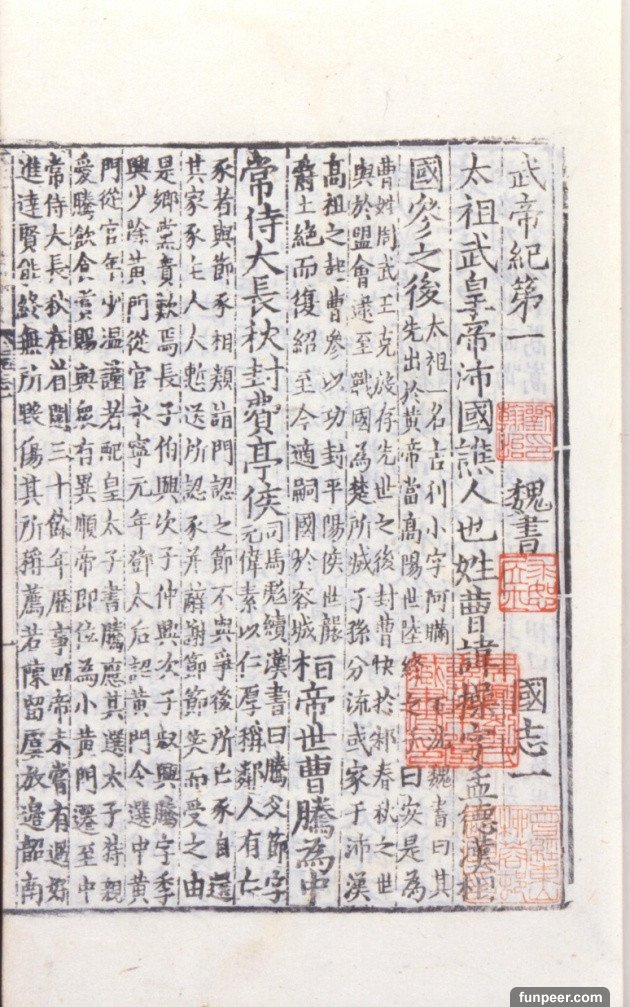 武帝紀第一 魏書 國志一
太祖武皇帝沛國譙人也姓曹諱操字孟德漢相
國參之後
太祖一名吉利小字阿瞞王沈魏書曰其
先出於黃帝當高陽世陸終之子曰安是為
曹姓周武王克殷存先世之後封曹俠於邾春秋之世
與於盟會逮至戰國為楚所滅子孫分流或家于沛漢
高祖之起曹參以功封平陽侯世襲
爵土絕而復紹至今適嗣國於容城
桓帝世曹騰為中
常侍大長秋封費亭侯
司馬彪續漢書曰騰父節字
元偉素以仁厚稱鄰人有亡
豕者與節豕相類詣門認之節不與爭後所亡豕自還
其家豕主人大慙送所認豕并辭謝節節笑而受之由
是鄉黨貴歎焉長子伯興次子仲興次子叔興騰字季
興少除黃門從官永寧元年鄧太后詔黃門令選中黃
門從官年少溫謹者配皇太子書騰應其選太子特親
愛騰飲食賞賜與衆有異順帝即位為小黃門遷至中
常侍大長秋在省闥三十餘年歷事四帝未嘗有過好
進達賢能終無所毀傷其所稱薦若陳留虞放邊韶南
funpeer.com